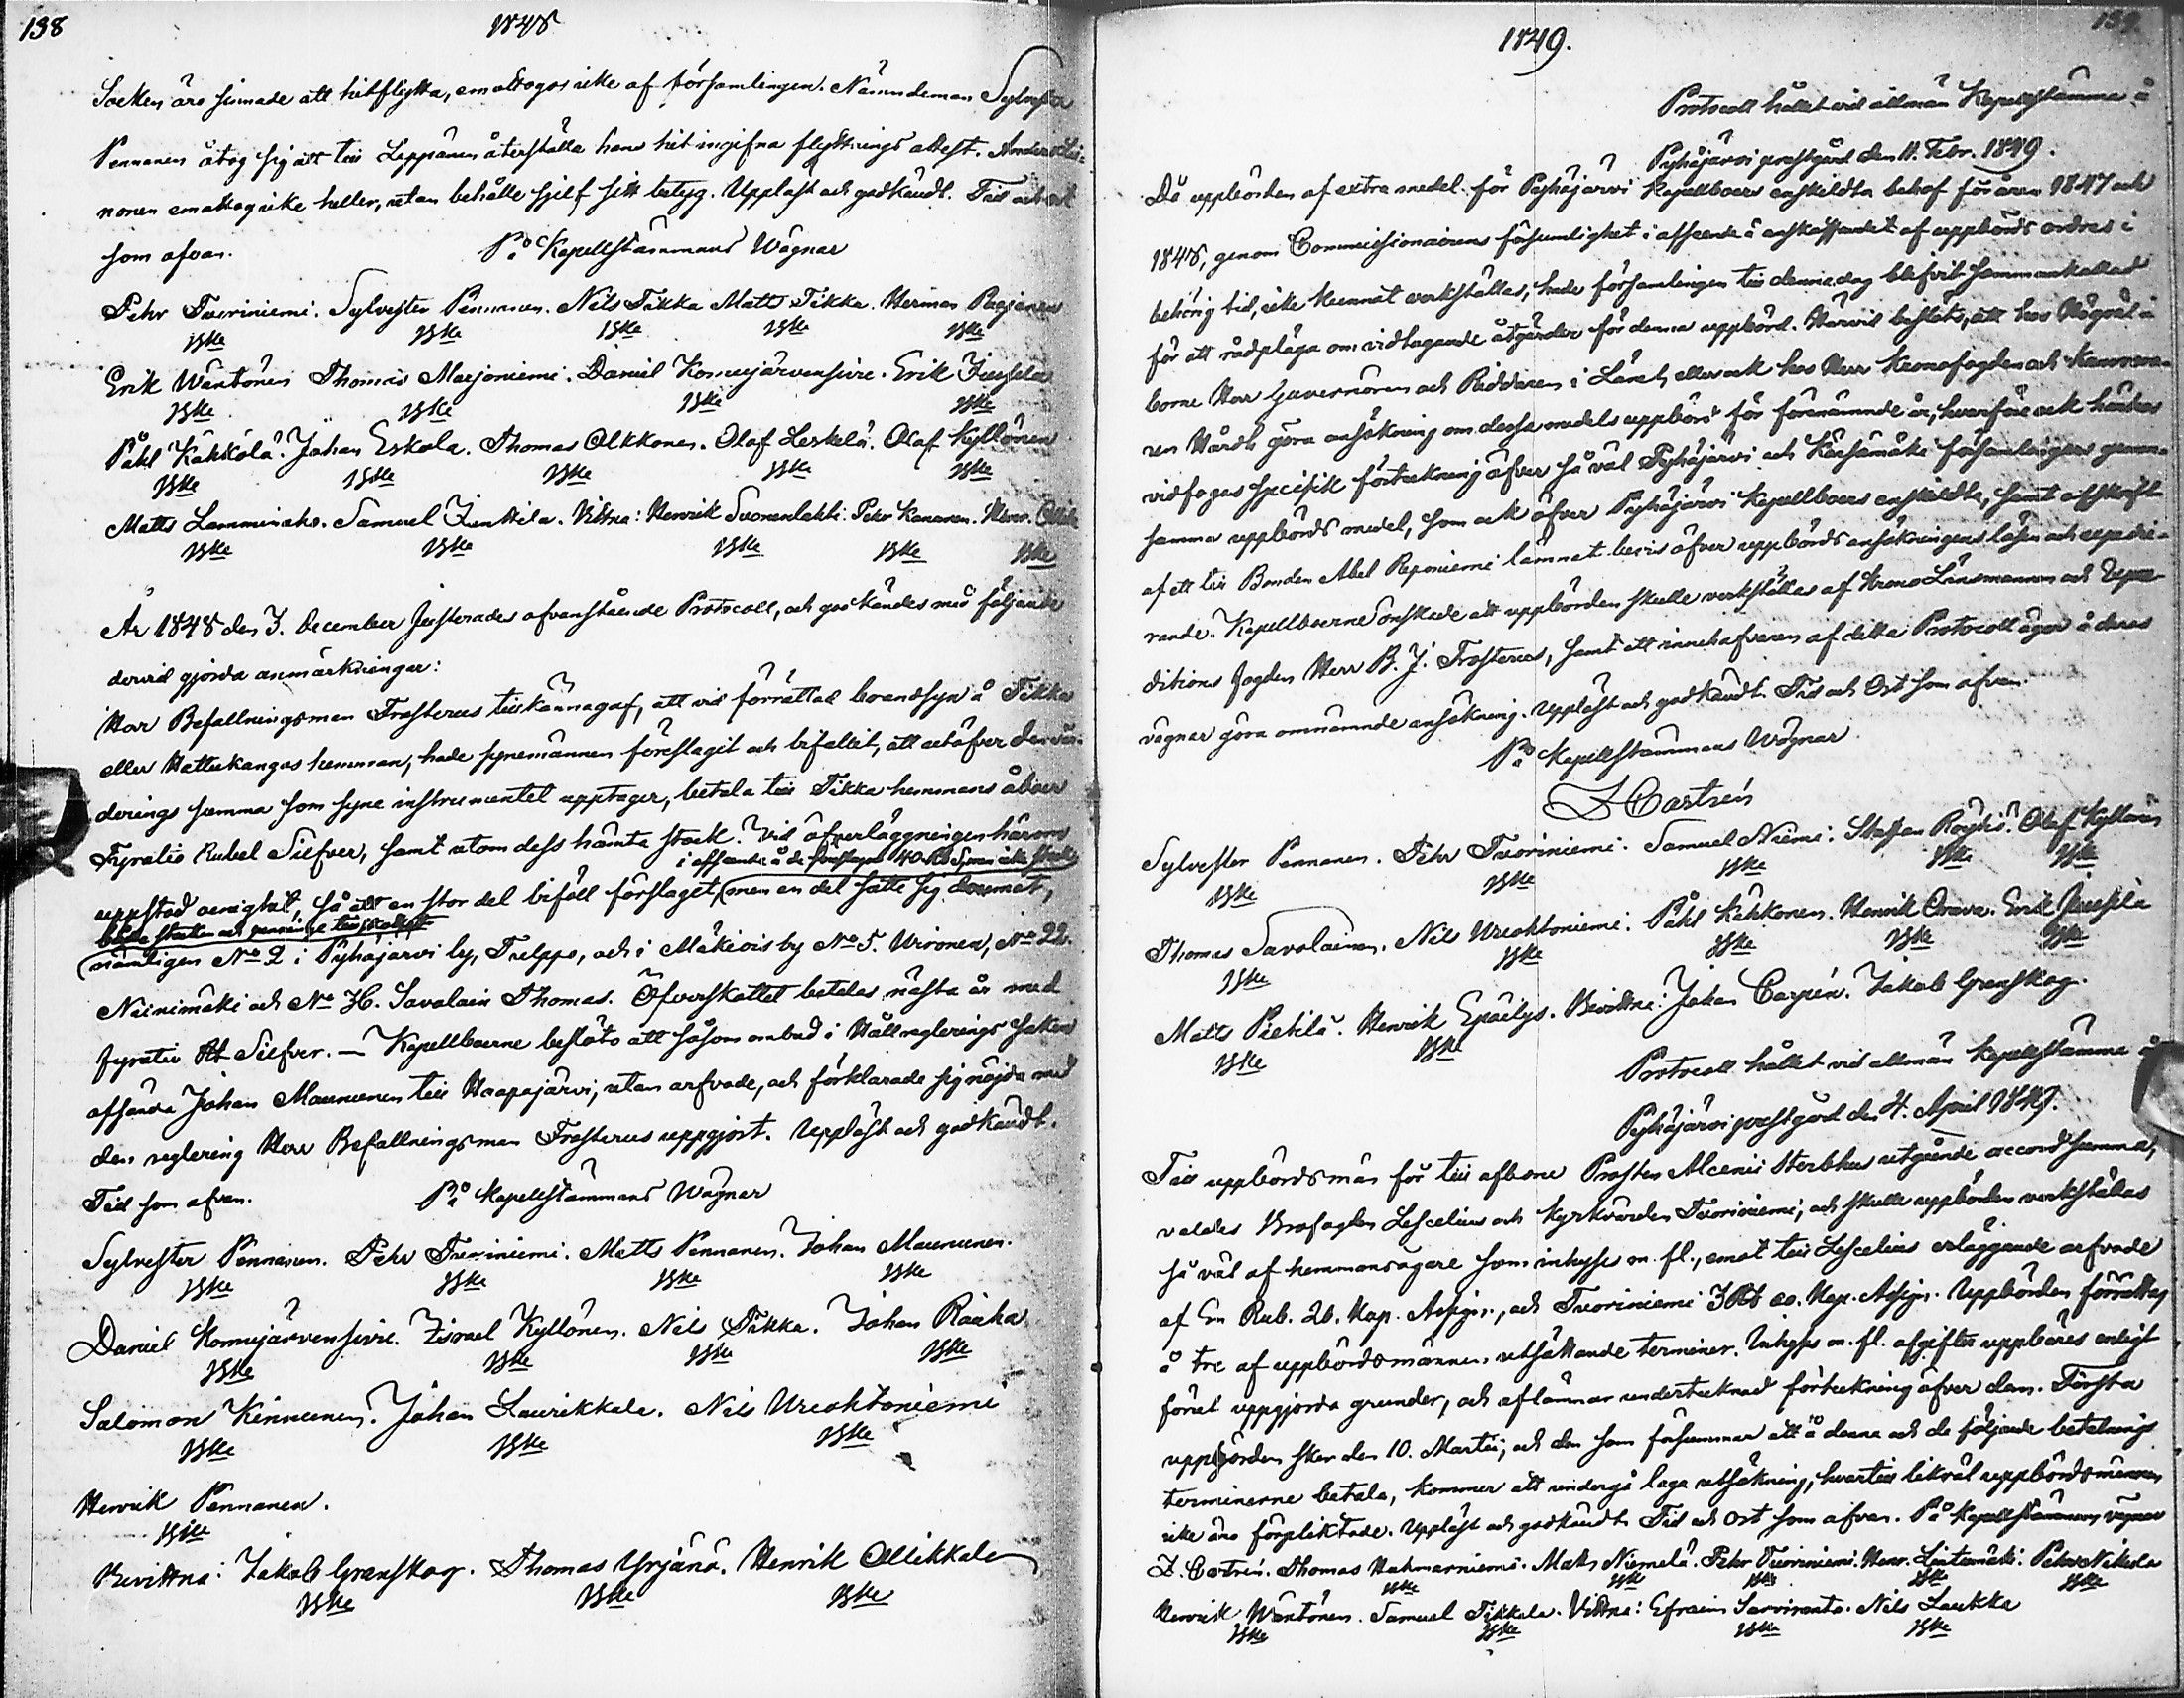 138
1848
Socken äro sinnade att hitflytta, emottogos icke af församlingen. Nämndeman Sylvester
Pennanen åtog sig att till Leppänen återställa hans hit ingifna flyttnings attest. Anders
nonen emottog icke heller, utan behålle sjelf sitt betyg. Uppläst och godkändt. Tid och ort
som ofvan. På Kapellstämmans Wägnar
Pehr Tuoriniemi. Sylvester Pennanen. Nils Tikka Matts Tikka. Herman Paganen
Erik Wäntönen Thomas Marjoniemi. Daniel Komujärvensivu. Erik Jussila
Påhl Käkkölä. Johan Eskola. Thomas Olkkonen. Olaf Leskelä. Olaf Kyllönen
Matts Lamminaho. Samuel Junttila. Vittna: Henrik Suonenlahti. Pehr Kananen. Henr.
År 1848 den 3. December Justerades ofvanstående Protocoll, och godkändes med följande
dervid gjorda anmärkningar:
Herr Befallningsman Frosterus tillkännagaf, att vid förrättad brandsyn å Tikka
eller Hattukangas hemman, hade synemännen föreslagit och bifallit, att utöfver den vär-
derings summa som syne instrumentet upptager, betala till Tikka hemmans åboer
Fyratio Rubel Silfver, samt utom dess hämta stock. Vid öfverläggningen härom
i afseende å de föreslagna 40 Rb S, men icke stock
uppstod oenighet, så att en stor del biföll förslaget, men en del satte sig deremot,
både stocken och penninge tillskottet
nämligen No 2 i Pyhäjärvi by, Tulppo, och i Mäkiois by No 5. Wironen, No 22.
Niinimäki och No 4. Savolain Thomas. Öfverskottet betalas nästa år med
fyratio Rb Silfver. — Kapellboerne beslöto att såsom ombud i Hållreglerings saken
afsända Johan Maununen till Haapajärvi, utan arfvode, och förklarade sig nöjda med
den reglering Herr Befallningsman Frosterus uppgjort. Uppläst och godkändt.
Tid som ofvan. På Kapellstämmans Wägnar
Sylvester Pennanen. Pehr Tuoriniemi. Matts Pennanen. Johan Maununen.
Daniel Komujärvensivu. Israel Kyllönen. Nils Tikka. Johan Raaka
Salomon Kinnunen. Johan Laurikkala. Nils Wuohtoniemi
Henrik Pennanen.
Bevittna: Jakob Granskog. Thomas Yrjänä. Henrik Ollikkala
1849.
139
Protocoll hållet vid allmän Kapellstämma å
Pyhäjärvi prestgård den 11. Febr. 1849.
Då uppbörden af extra medel för Pyhäjärvi Kapellboers enskildta behof för åren 1847 och
1848, genom Commissionairens försumlighet i afseende å anskaffandet af uppbörds ordres i
behörig tid, icke kunnat verkställas, hade församlingen till denna dag blifvit sammankallad
för att rådpläga om vidtagande åtgärder för denna uppbörd. Härvid beslöts, att hos Högväl-
borne Herr Guvernören och Riddaren i Länet, eller ock hos Herr Kronofogden och
ren Wårdh göra ansökning om dessa medels uppbörd för förenämnde år, hvarföre ock härhos
vidfogas specifik förteckning öfver så väl Pyhäjärvi och Kärsämäki församlingars gemen-
samma uppbörds medel, som ock öfver Pyhäjärvi Kapellboers enskildta, samt afskrift
af ett till Bonden Abel Reponiemi lämnat bevis öfver uppbörds ansökningens lösen och expedie-
rande. Kapellboerne önskade att uppbörden skulle verkställas af Krono Länsmannen och Expe-
ditions fogden Herr B. J. Frosterus, samt att innehafvaren af detta Protocoll äger å deras
vägnar göra omnämnde ansökning. Uppläst och godkändt. Tid och Ort som ofvan.
På Kapellstämmans Wägnar
Z Castrén
Sylvester Pennanen. Pehr Tuoriniemi. Samuel Niemi. Staffan Röykiö. Olof Kyllönen
Thomas Savolainen. Nils Wuohtoniemi. Påhl Kekkonen. Henrik Orava. Erik Jussila
Matts Pietilä. Henrik Epäilys. Bevittna: Johan Carpén. Jakob Granskog.
Protocoll hållet vid allmän Kapellstämma å
Pyhäjärvi prestgård den 4. April 1849.
Till uppbördsmän för till aflidne Prosten Alcenii Sterbhus utgående accordsumma,
valdes Brofogden Lescelius och Kyrkvärden Tuoriniemi, och skulle uppbörden verkställas
så väl af hemmansägare som inhyses m. fl., emot till Lescelius erläggande arfvode
af En Rub. 20. Kop. Assign., och Tuoriniemi 3 Rb 60. Kop. Assign. Uppbörden förrättas
å tre af uppbördsmännen utsättande terminer. Inhyses m. fl. afgifter uppbäres enligt
förut uppgjorda grunder, och aflämnar undertecknad förteckning öfver dem. Första
uppbörden sker den 10. Martii, och den som försummar att å denna och de följande betalnings
terminerne betala, kommer att undergå laga utsökning, hvartill likväl uppbördsmännen
icke äro förpliktade. Uppläst och godkändt. Tid och Ort som ofvan. På Kapellstämmans vägnar
Z. Castrén. Thomas Hahmarniemi. Mats Niemelä. Pehr Tuoriniemi. Henr. Lintumäki. Pehr Nikula
Henrik Wäntönen. Samuel Tikkala. Vittna: Efraim Sarviranta. Nils Laukka